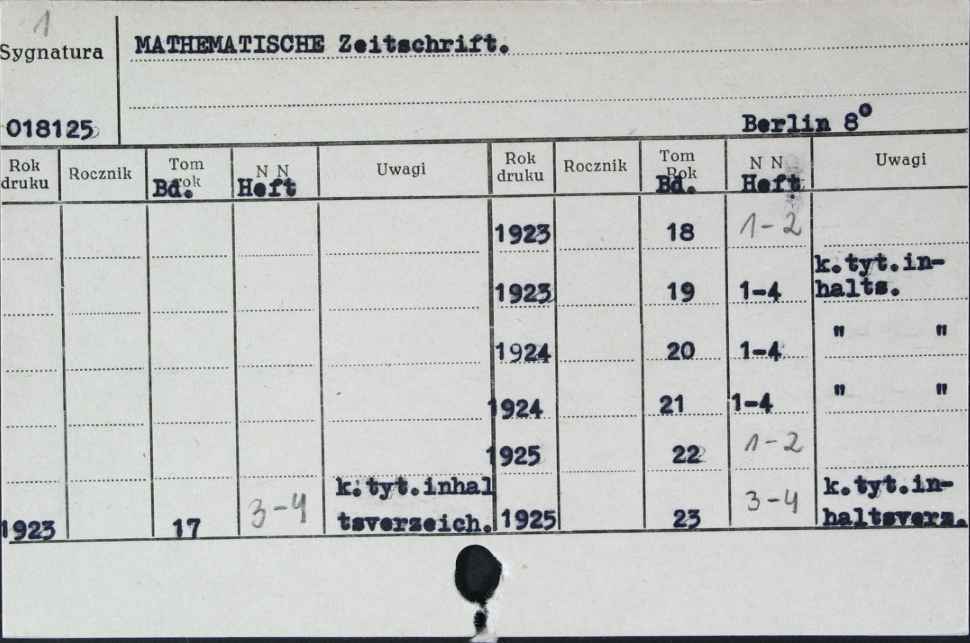 1
Sygnatura MATHEMATISCHE Zeitschrift.
018125 Berlin 8°
Rok druku Rocznik Tom rok Bd. N N Heft Uwagi Rok druku Rocznik Tom Rok Bd. N N Heft Uwagi
1923 18 1-2
1923 19 1-4 k.tyt.in-
halts.
1924 20 1-4 " "
1924 21 1-4 " "
1925 22 1-2
1923 17 3-4 k.tyt.inhal
tsverzeich.
1925 23 3-4 k.tyt.in-
haltsverz.